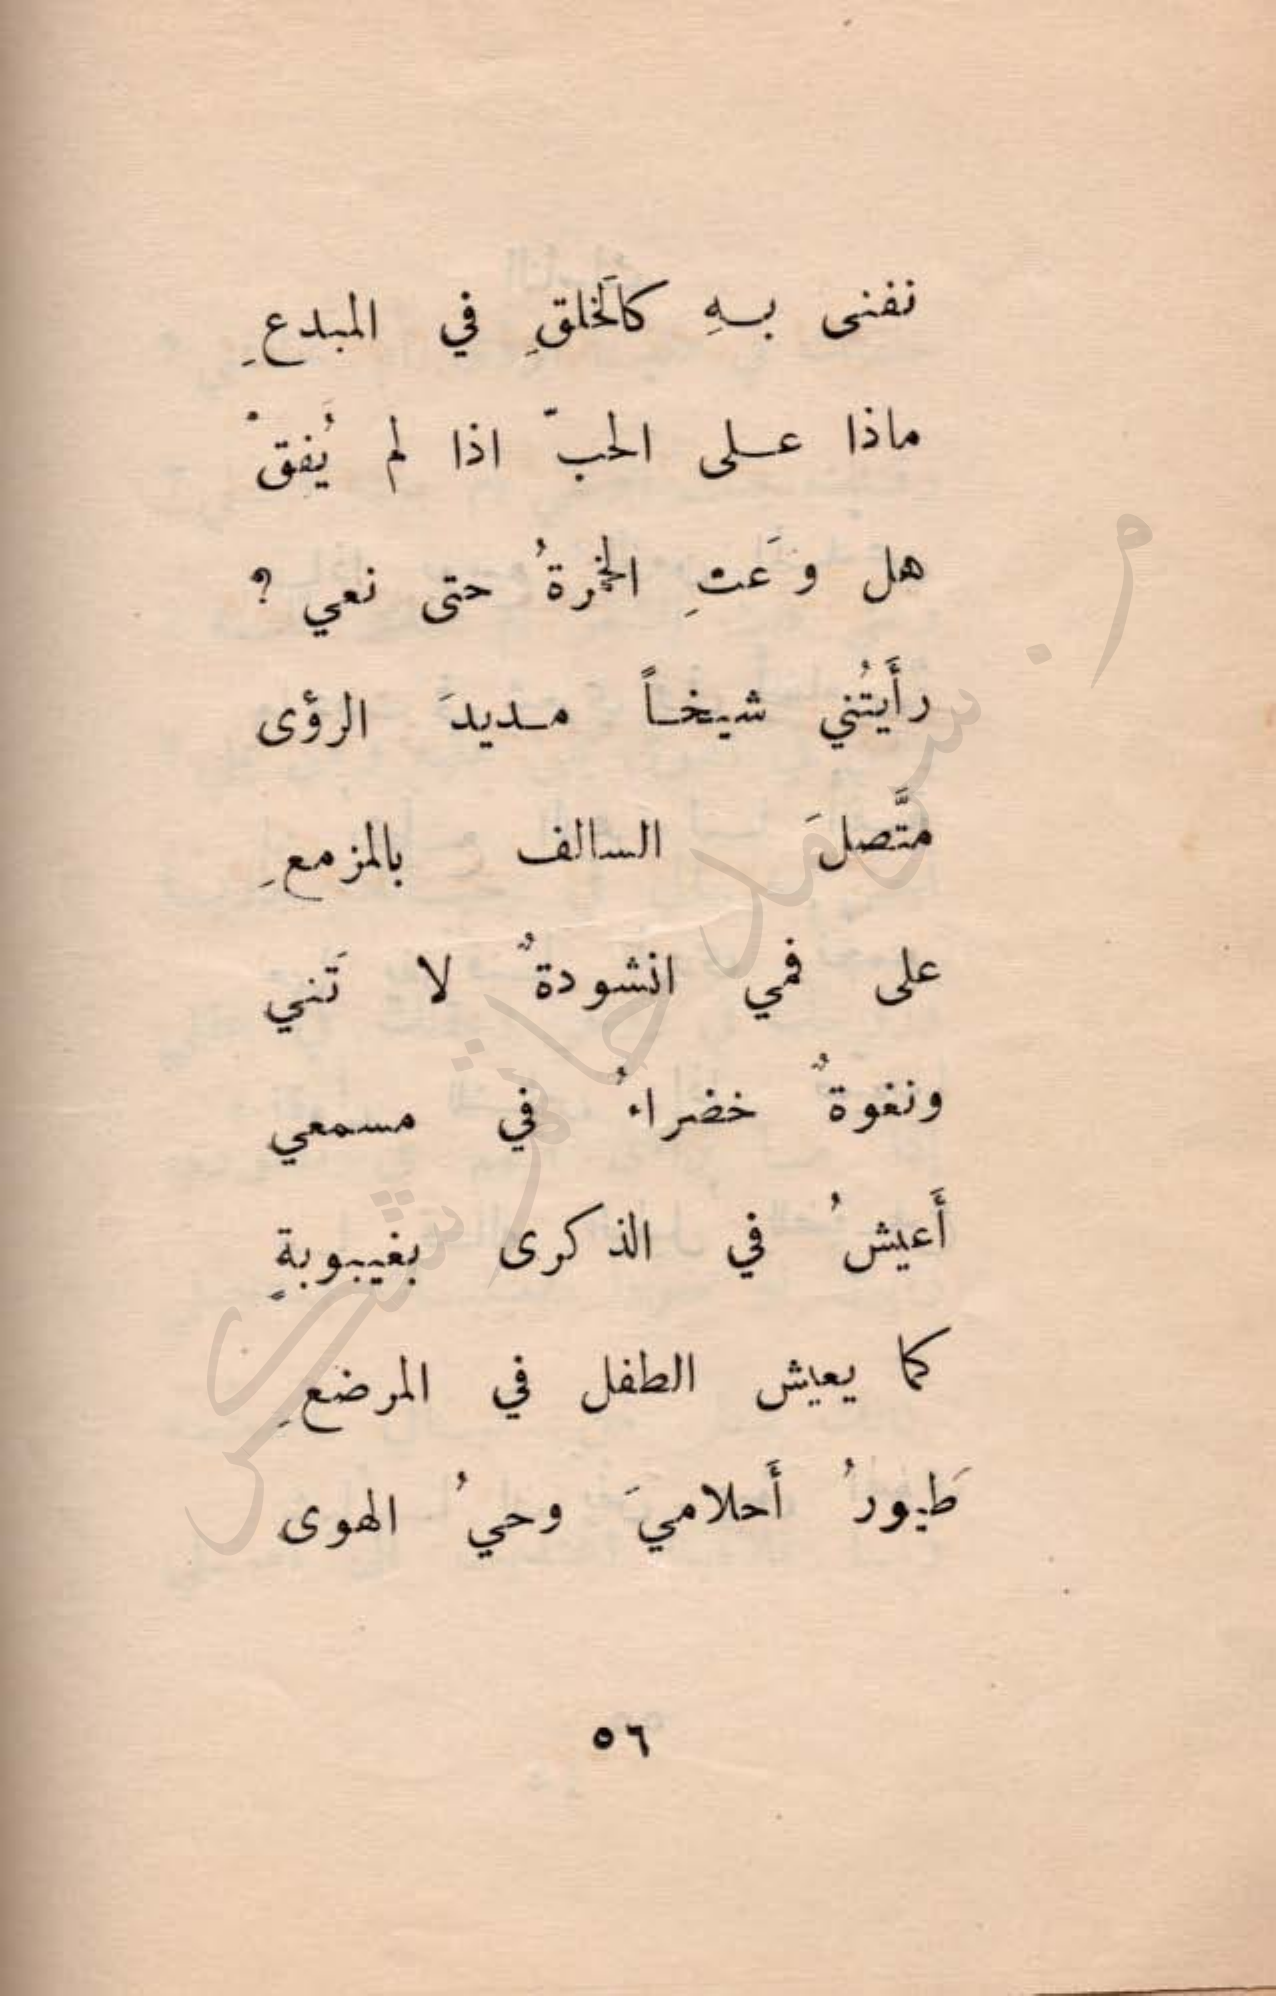 نفنى بـهِ كالَخلقِ في المبدعِ
ماذا عـلى الحبّ اذا لم يُفِقْ
هل وَعتِ الخمرةُ حتى نعي ؟
رأَيتُني شيخـاً مـديدَ الرؤى
متَّصلَ السالف بالمزمعِ
على فمي انشودةٌ لا تَني
ونغوةٌ خضراءُ في مسمعي
أَعيشُ في الذكرى بغيبوبةٍ
كما يعيش الطفل في المرضعِ
طَيورُ أَحلاميَ وحيُ الهوى
٥٦